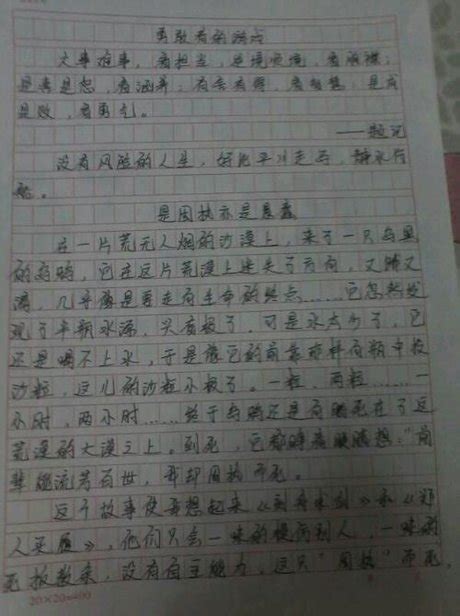 勇敢者的游戏
大事难事，看担当；逆境顺境，看胸襟；
是喜是怒，看涵养；有舍有得，看智慧；是成
是败，看勇气。
——题记
没有风险的人生，好比平川走马，静水行
船。
是固执亦是愚蠢
在一片荒无人烟的沙漠上，来了一只乌黑
的乌鸦，它在这片荒漠上迷失了方向，又饿又
渴，几乎像是要走向生命的终点……它忽然发
现了半瓶水源，兴奋极了，可是水太少了，它
还是喝不上水，于是像它的前辈那样向瓶中投
沙粒，这儿的沙粒小极了。一粒，两粒……一
小时，两小时……终于乌鸦还是渴死在了这
荒漠的大漠之上。到死，它都
辈能流芳百世，我却固执而死。
这个故事使我想起来《刻舟求剑》和《郑
人买履》，他们只会一味的模仿别人，一味的
死板教条，没有自主能力，这只“固执”而死
20×20=400